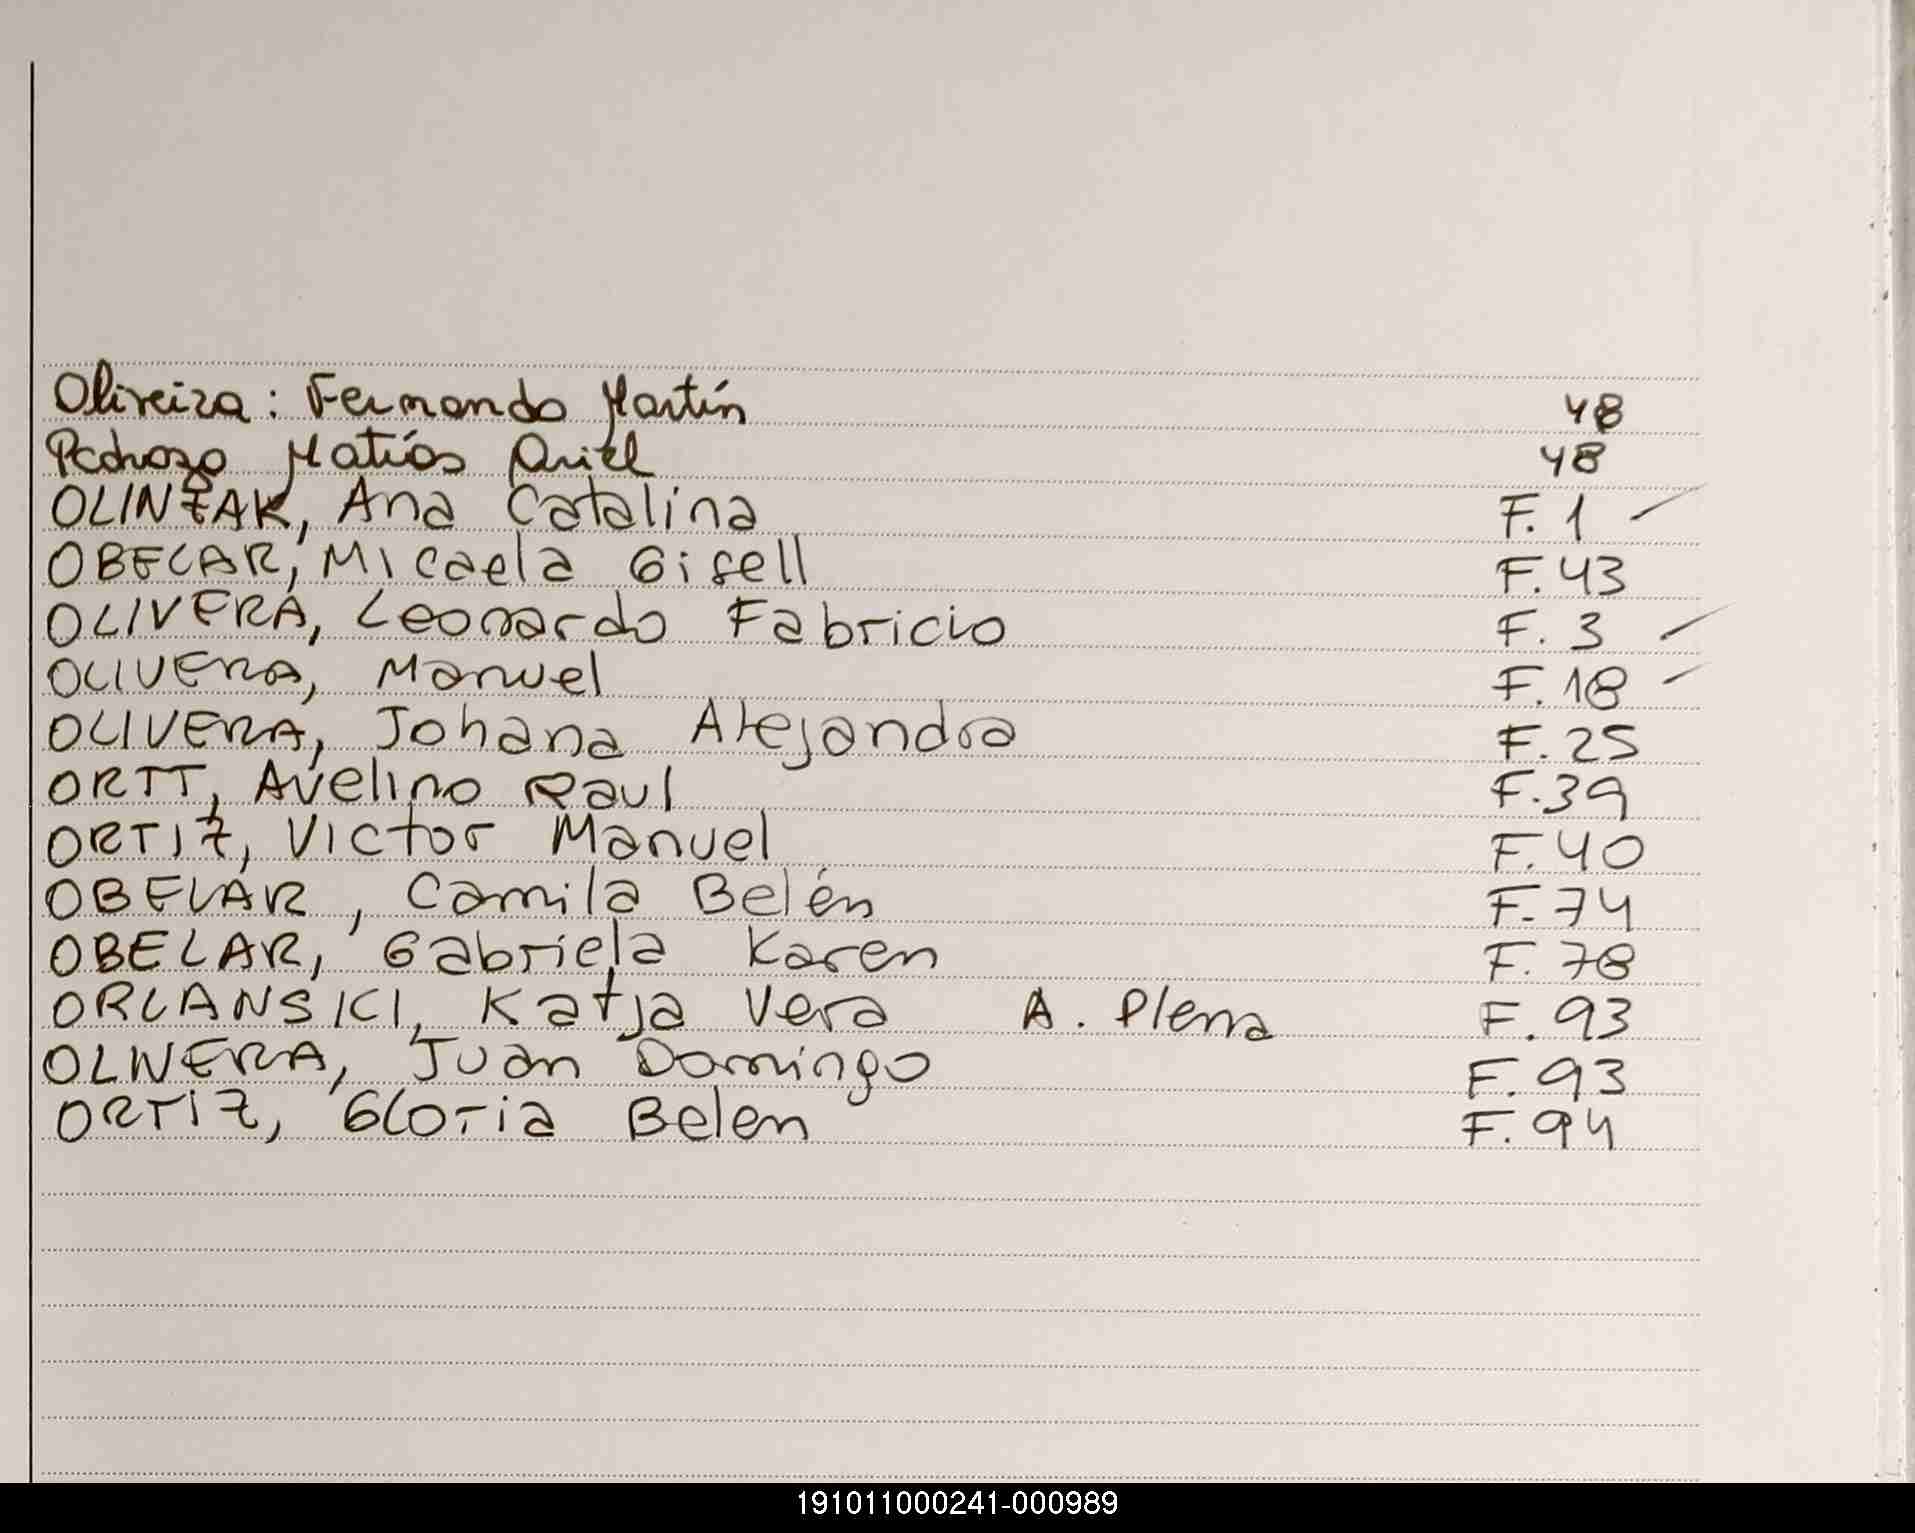 Oliveira: Fernando Martín 48
Pedrozo Matías Ariel 48
OLINZAK, Ana Catalina F. 1
OBELAR, Micaela Gisell F. 43
OLIVERA, Leonardo Fabricio F. 3
OLIVERA, Manuel F. 18
OLIVERA, Johana Alejandra F. 25
ORTT, Avelino Raul F. 39
ORTIZ, Victor Manuel F. 40
OBELAR, Camila Belén F. 74
OBELAR, Gabriela Karen F. 78
ORLANSKI, Katja Vera A. Plena F. 93
OLIVERA, Juan Domingo F. 93
ORTIZ, Gloria Belen F. 94
191011000241-000989